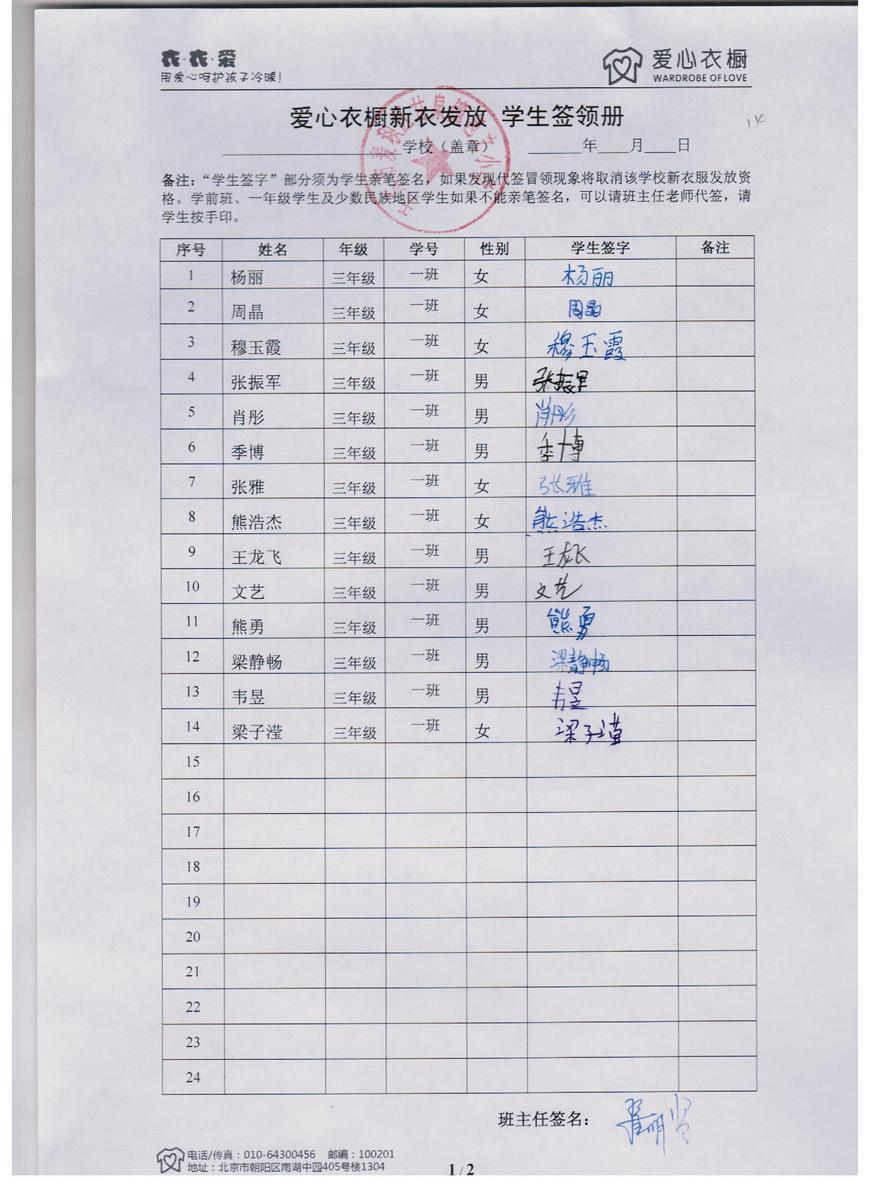 衣·衣·爱
用爱心呵护孩子冷暖!
爱心衣橱
WARDROBE OF LOVE
爱心衣橱新衣发放 学生签领册
14
学校（盖章） 年 月 日
备注：“学生签字”部分须为学生亲笔签名，如果发现代签冒领现象将取消该学校新衣服发放资
格。学前班、一年级学生及少数民族地区学生如果不能亲笔签名，可以请班主任老师代签，请
学生按手印。
序号 姓名 年级 学号 性别 学生签字 备注
1 杨丽 三年级 一班 女 杨丽
2 周晶 三年级 一班 女 周晶
3 穆玉霞 三年级 一班 女 穆玉霞
4 张振军 三年级 一班 男 张振军
5 肖彤 三年级 一班 男 肖彤
6 季博 三年级 一班 男 季博
7 张雅 三年级 一班 女 张雅
8 熊浩杰 三年级 一班 女 熊浩杰
9 王龙飞 三年级 一班 男 王龙飞
10 文艺 三年级 一班 男 文艺
11 熊勇 三年级 一班 男 熊勇
12 梁静畅 三年级 一班 男 梁静畅
13 韦昱 三年级 一班 男 韦昱
14 梁子滢 三年级 一班 女 梁子滢
15
16
17
18
19
20
21
22
23
24
班主任签名：
电话/传真：010-64300456 邮编：100201
地址：北京市朝阳区南湖中园405号楼1304
1 / 2